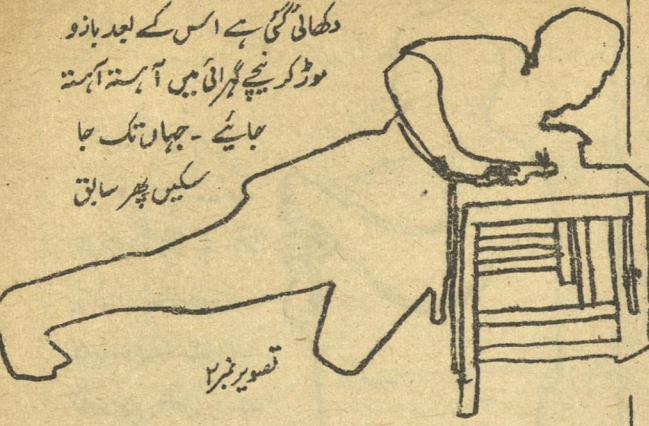 دکھائی گئی ہے اسس کے بعد بازو
موڑ کر نیچے گہرائی میں آہستہ آہستہ
جایئے - جہاں تک جا
سکیں پھر سابق
تصویر نمبر ۲